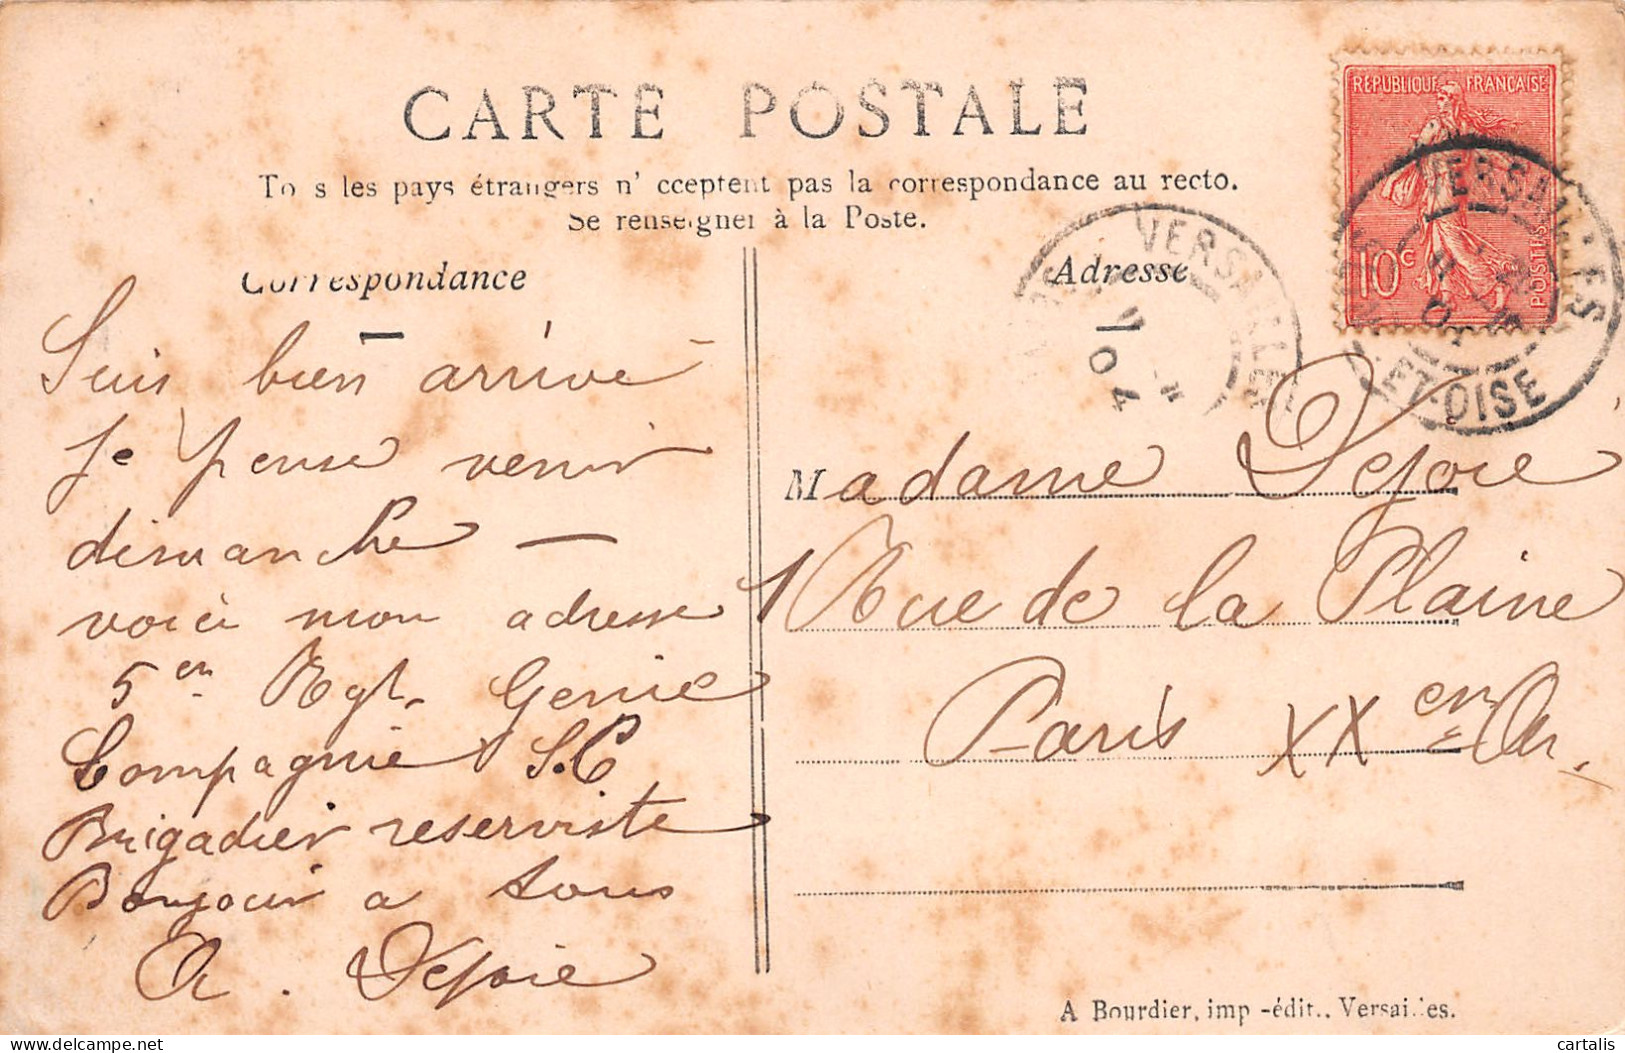 CARTE POSTALE
To s les pays étrangers n' cceptent pas la correspondance au recto.
Se renseigner à la Poste.
Correspondance
Adresse
RÉPUBLIQUE FRANÇAISE
10c
POSTES
VERSAILLES
ET-OISE
VERSAILLES
04
Suis bien arrivé
Je pense venir
dimanche —
voici mon adresse
5en Rgt. Genie
Compagnie S.C
Brigadier reserviste
Bonjour a tous
A. Dejoie
Madame Dejoie
1 Rue de la Plaine
Paris XXem Ar.
A Bourdier, imp -édit., Versailles.
cartalis
delcampe.net